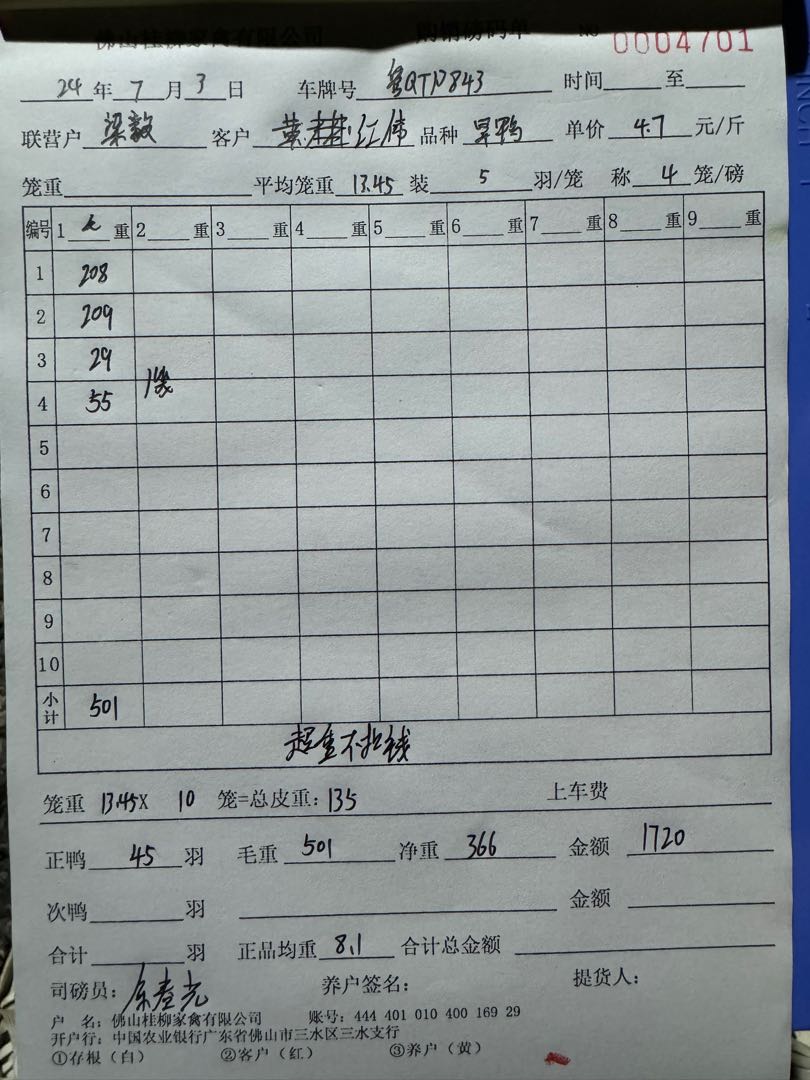 佛山桂柳家禽有限公司 购销磅码单 NO 0004701
24 年 7 月 3 日 车牌号 粤QTN843 时间 至
联营户 梁毅 客户 黄 红伟 品种 旱鸭 单价 4.7 元/斤
笼重 平均笼重 13.45 装 5 羽/笼 称 4 笼/磅
编号 1 重 2 重 3 重 4 重 5 重 6 重 7 重 8 重 9 重
1 208
2 209
3 29
4 55 1袋
5
6
7
8
9
10
小计 501
超重不扣钱
笼重 13.45X 10 笼=总皮重: 135 上车费
正鸭 45 羽 毛重 501 净重 366 金额 1720
次鸭 羽 金额
合计 羽 正品均重 8.1 合计总金额
司磅员: 养户签名: 提货人:
户 名: 佛山桂柳家禽有限公司 账号: 444 401 010 400 169 29
开户行: 中国农业银行广东省佛山市三水区三水支行
①存根(白) ②客户(红) ③养户(黄)